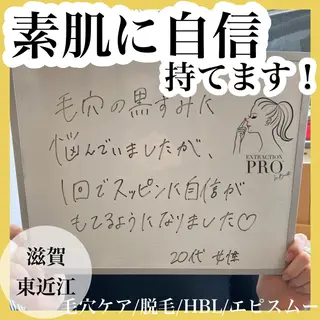 素肌に自信
持てます！
毛穴の黒ずみに
悩んでいましたが、
1回でスッピンに自信が
もてるようになりました♡
20代 女性
EXTRACTION
PRO
滋賀
東近江
毛穴ケア/脱毛/HBL/エピスムー